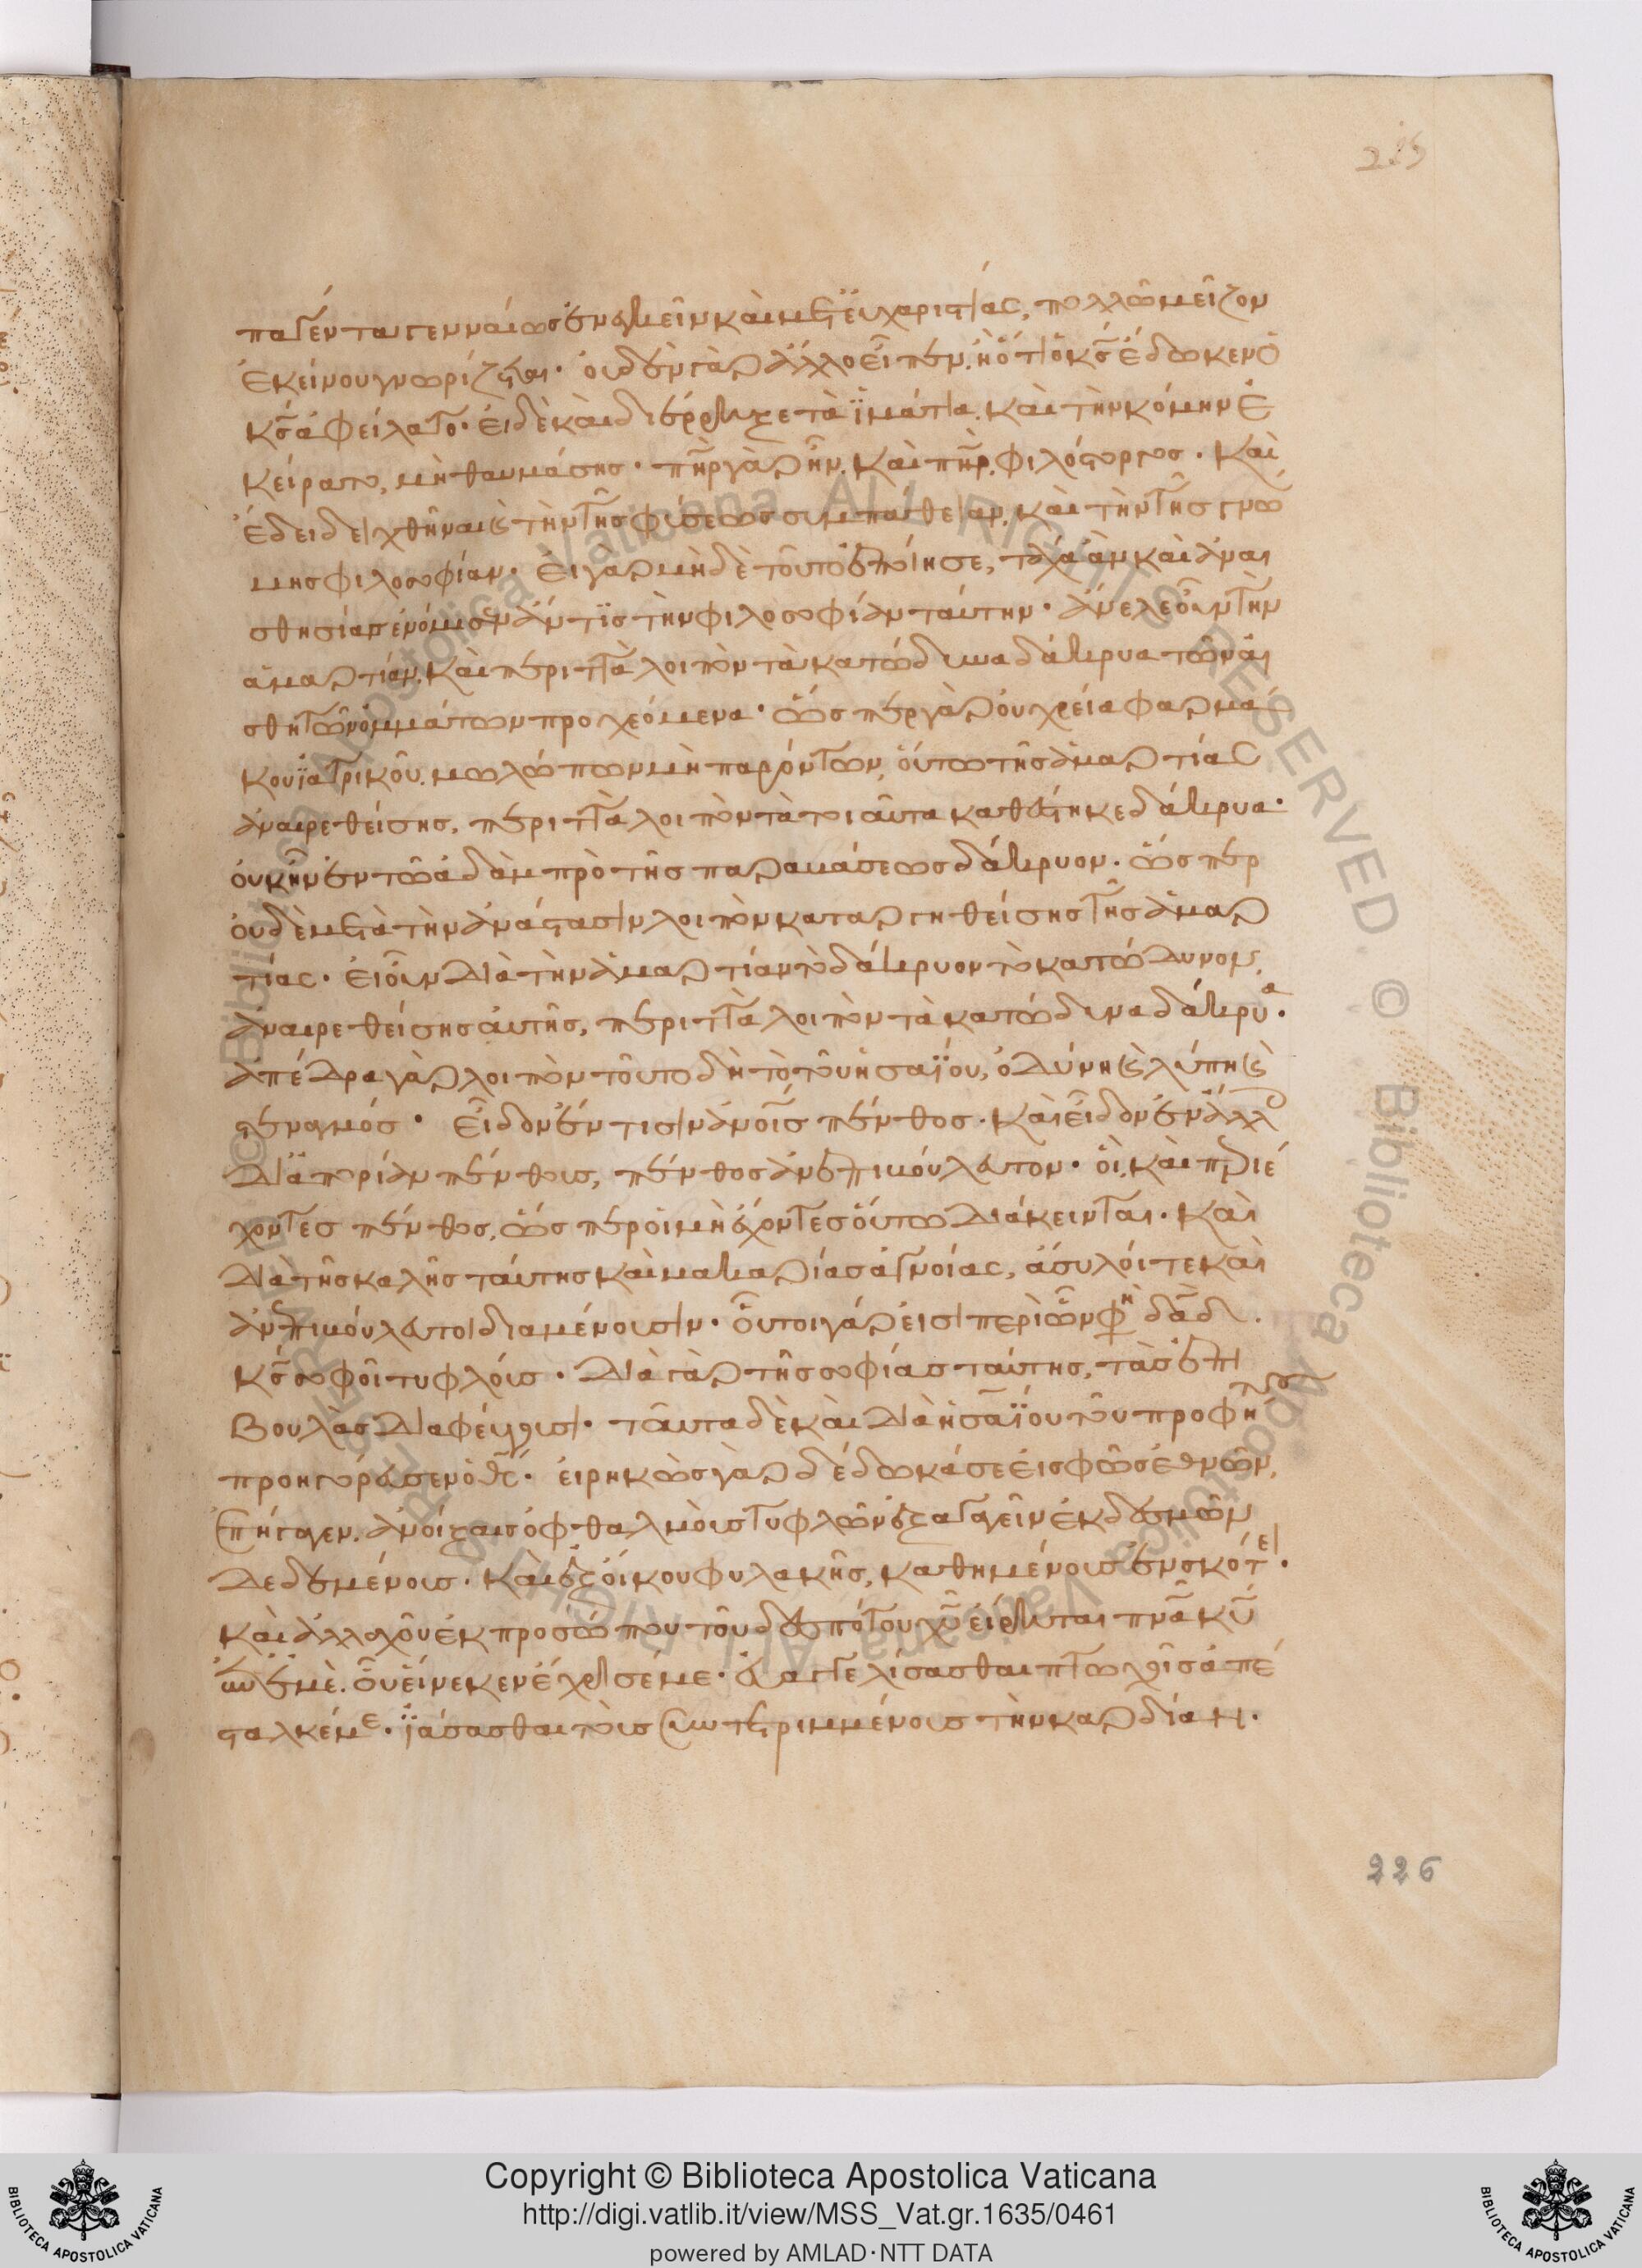 225
παγέντα γενναίως ἐνεγκεῖν καὶ μετ εὐχαριστίας, πολλῶ μεῖζον
ἐκείνου γνωρίζεται· οὐδὲν γὰρ ἄλλο εἶπεν, ἢ ὅτι ὁ κς ἔδωκεν ὁ
κς ἀφείλατο· εἰ δὲ καὶ διέρρηξε τὰ ϊμάτια, καὶ τὴν κόμην ἐ
κείρατο, μὴ θαυμάσης· πηρ γὰρ ἦν, καὶ πηρ φιλόστοργος· καὶ
ἔδει δειχθῆναι καὶ τὴν τῆς φύσεως συμπάθειαν, καὶ τὴν τῆς γνώ
μης φιλοσοφίαν· εἰ γὰρ μὴ δὲ τοῦτο ἐποίησε, τάχα ἂν καὶ ἀναι
σθησίαν ἐνόμισεν ἄν τϊς τὴν φιλοσοφίαν ταύτην· ἀνελεῖν τὴν
ἁμαρτίαν, καὶ περιττὰ λοιπὸν τὰ κατώδυνα δάκρυα τῶν αἰ
σθητῶν ὀμμάτων προχεόμενα· ὥσπερ γὰρ οὐ χρεία φαρμά
κου ϊατρικοῦ, μωλώπων μὴ παρόντων, οὕτω τῆς ἁμαρτίας
ἀναιρεθείσης, περιττὰ λοιπὸν τὰ τοιαῦτα καθέστηκε δάκρυα·
οὐκ ἦν ἐν τῶ ἀδὰμ πρὸ τῆς παραβάσεως δάκρυον· ὥσπερ
οὐδὲ μετὰ τὴν ἀνάστασιν λοιπὸν καταργηθείσης τῆς ἁμαρ
τίας· εἰ οὖν διὰ τὴν ἁμαρτίαν τὸ δάκρυον τὸ κατώδυνον,
ἀναιρεθείσης αὐτῆς, περιττὰ λοιπὸν τὰ κατώδυνα δάκρυα·
ἀπέδρα γὰρ λοιπὸν τοῦτο δὴ τὸ τοῦ ἡσαΐου, ὀδύνη καὶ λύπη καὶ
στεναγμός· εἶδον ἐν τισὶν ἀνοις πένθος· καὶ εἶδον ἐν ἄλλ
δι ἀπορίαν πένθους, πένθος ἀνεπιβούλευτον· οἳ, καὶ περιέ
χοντες πένθος, ὥσπερ οἱ μὴ ἔχοντες οὕτω διάκεινται· καὶ
διὰ τῆς καλῆς ταύτης καὶ μακαρίας ἀγνοίας, ἄσυλοί τε καὶ
ἀνεπιβούλευτοι διαμένουσιν· οὗτοι γάρ εἰσι περὶ ὧν φη δαδ·
κς σοφοῖ τυφλούς· διὰ γὰρ τῆς σοφίας ταύτης, τὰς ἐπι
βουλὰς διαφεύγουσι· ταῦτα δὲ καὶ διὰ ἡσαΐου τοῦ προφήτου
προηγόρευσεν ὁ θς· εἰρηκὼς γὰρ δέδωκά σε εἰς φῶς ἐθνῶν,
ἐπήγαγεν, ἀνοίξαι ὀφθαλμοὺς τυφλῶν ἐξαγαγεῖν ἐκ δεσμῶν
δεδεμένους· καὶ ἐξ οἴκου φυλακῆς, καθημένους ἐν σκότει·
καὶ ἀλλαχοῦ ἐκ προσώπου τοῦ δεσπότου χυ εἴρηται πνα κυ
ἐπ ἐμὲ, οὗ εἵνεκεν ἔχρισέ με· εὐαγγελίσασθαι πτωχοῖς ἀπέ
σταλκέ με· ϊάσασθαι τοὺς συντετριμμένους τὴν καρδίαν·
226
Copyright © Biblioteca Apostolica Vaticana
http://digi.vatlib.it/view/MSS_Vat.gr.1635/0461
powered by AMLAD·NTT DATA
BIBLIOTECA APOSTOLICA VATICANA
BIBLIOTECA APOSTOLICA VATICANA